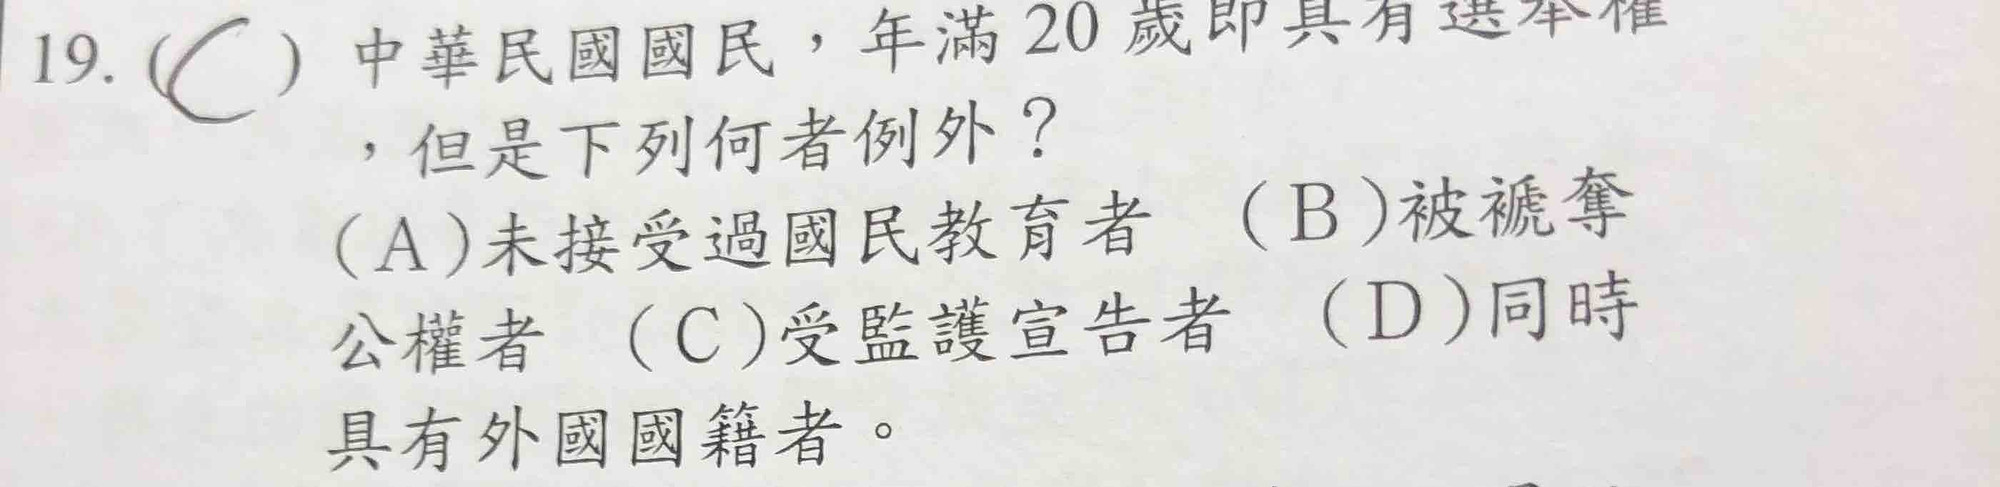 19. (C) 中華民國國民，年滿 20 歲即具有選舉權
，但是下列何者例外？
(A)未接受過國民教育者 (B)被褫奪
公權者 (C)受監護宣告者 (D)同時
具有外國國籍者。